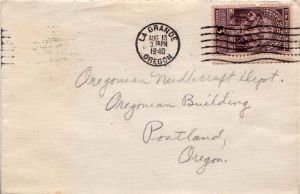 LA GRANDE
AUG 13
3 PM
1940
OREGON
Oregonian Needlecraft Dept.
Oregonian Building
Portland,
Oregon.